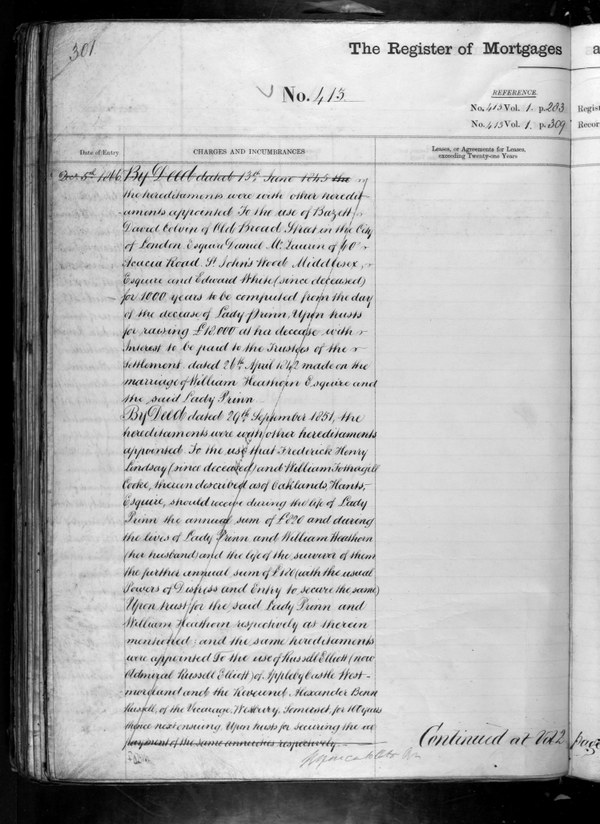 301
The Register of Mortgages a
No. 413
REFERENCE.
No. 413 Vol. 1. p. 203
Regist
No. 413 Vol. 1 p. 309
Recor
Date of Entry
CHARGES AND INCUMBRANCES
Leases, or Agreements for Leases,
exceeding Twenty-one Years
5th 1866 By Deed dated 13th June 1845 the
the hereditaments were with other heredit-
aments appointed To the use of Bazett
David Colvin of Old Broad Street in the City
of London Esquire Daniel Mc Lauren of 40
Acacia Road St John's Wood Middlesex,
Esquire and Edward White (since deceased)
for 1000 years to be computed from the day
of the decease of Lady Prinn, Upon trusts
for raising £12,000 at her decease with
Interest to be paid to the Trustees of the
Settlement dated 26th April 1842 made on the
marriage of William Heathorn Esquire and
the said Lady Prinn
By Deed dated 29th September 1851, the
hereditaments were with other hereditaments
appointed To the use that Frederick Henry
Lindsay (since deceased) and William Fothergill
Cooke, therein described as of Oaklands Hants,
Esquire, should receive during the life of Lady
Prinn the annual sum of and during
the lives of Lady Prinn and William Heathorn
(her husband) and the life of the survivor of them
the further annual sum of (with the usual
Powers of Distress and Entry to secure the same)
Upon trust for the said Lady Prinn and
William Heathorn respectively as therein
mentioned; and the same hereditaments
were appointed To the use of Russell Elliott (now
Admiral Russell Elliott) of Appleby Castle West-
moreland and the Reverend Alexander Benn
Russell, of the Vicarage Westbury, Somerset, for 100 years
thence next ensuing Upon trusts for securing the
payment of the same annuities respectively
Continued at Vol 2 page